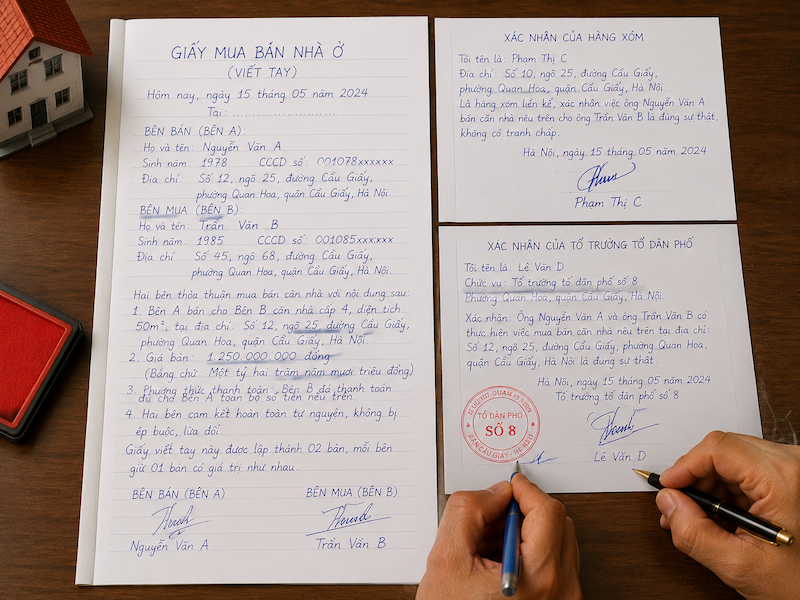 GIẤY MUA BÁN NHÀ Ở
(VIẾT TAY)
Hôm nay, ngày 15 tháng 05 năm 2024
Tại: ............................
BÊN BÁN (BÊN A):
Họ và tên: Nguyễn Văn A
Sinh năm: 1978 CCCD số: 001078xxxxxx
Địa chỉ: Số 12, ngõ 25, đường Cầu Giấy,
phường Quan Hoa, quận Cầu Giấy, Hà Nội.
BÊN MUA (BÊN B):
Họ và tên: Trần Văn B
Sinh năm: 1985 CCCD số: 001085xxxxxx
Địa chỉ: Số 45, ngõ 68, đường Cầu Giấy,
phường Quan Hoa, quận Cầu Giấy, Hà Nội.
Hai bên thỏa thuận mua bán căn nhà với nội dung sau:
1. Bên A bán cho Bên B căn nhà cấp 4, diện tích
50m², tại địa chỉ: Số 12, ngõ 25, đường Cầu Giấy,
phường Quan Hoa, quận Cầu Giấy, Hà Nội.
2. Giá bán: 1.250.000.000 đồng
(Bằng chữ: Một tỷ hai trăm năm mươi triệu đồng)
3. Phương thức thanh toán: Bên B đã thanh toán
đủ cho Bên A toàn bộ số tiền nêu trên.
4. Hai bên cam kết hoàn toàn tự nguyện, không bị
ép buộc, lừa dối.
Giấy viết tay này được lập thành 02 bản, mỗi bên
giữ 01 bản có giá trị như nhau.
BÊN BÁN (BÊN A) BÊN MUA (BÊN B)
Nguyễn Văn A Trần Văn B
XÁC NHẬN CỦA HÀNG XÓM
Tôi tên là: Phạm Thị C
Địa chỉ: Số 10, ngõ 25, đường Cầu Giấy,
phường Quan Hoa, quận Cầu Giấy, Hà Nội.
Là hàng xóm liền kề, xác nhận việc ông Nguyễn Văn A
bán căn nhà nêu trên cho ông Trần Văn B là đúng sự thật,
không có tranh chấp.
Hà Nội, ngày 15 tháng 05 năm 2024
Phạm Thị C
XÁC NHẬN CỦA TỔ TRƯỞNG TỔ DÂN PHỐ
Tôi tên là: Lê Văn D
Chức vụ: Tổ trưởng tổ dân phố số 8
Phường Quan Hoa, quận Cầu Giấy, Hà Nội.
Xác nhận: Ông Nguyễn Văn A và ông Trần Văn B có
thực hiện việc mua bán căn nhà nêu trên tại địa chỉ:
Số 12, ngõ 25, đường Cầu Giấy, phường Quan Hoa,
quận Cầu Giấy, Hà Nội là đúng sự thật.
Hà Nội, ngày 15 tháng 05 năm 2024
Tổ trưởng tổ dân phố số 8
TỔ DÂN PHỐ
SỐ 8
CẦU GIẤY - HÀ NỘI
Lê Văn D